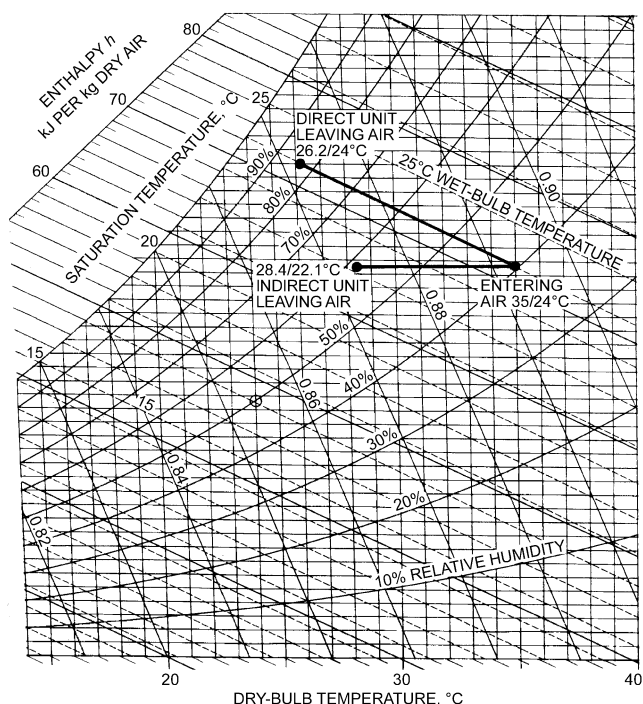 ENTHALPY h
kJ PER kg DRY AIR
80
70
60
SATURATION TEMPERATURE, °C
25
20
15
DIRECT UNIT
LEAVING AIR
26.2/24°C
90%
80%
70%
25°C WET-BULB TEMPERATURE
0.90
28.4/22.1°C
INDIRECT UNIT
LEAVING AIR
ENTERING
AIR 35/24°C
0.88
50%
40%
0.86
15
30%
0.84
20%
0.82
10% RELATIVE HUMIDITY
20
30
40
DRY-BULB TEMPERATURE, °C